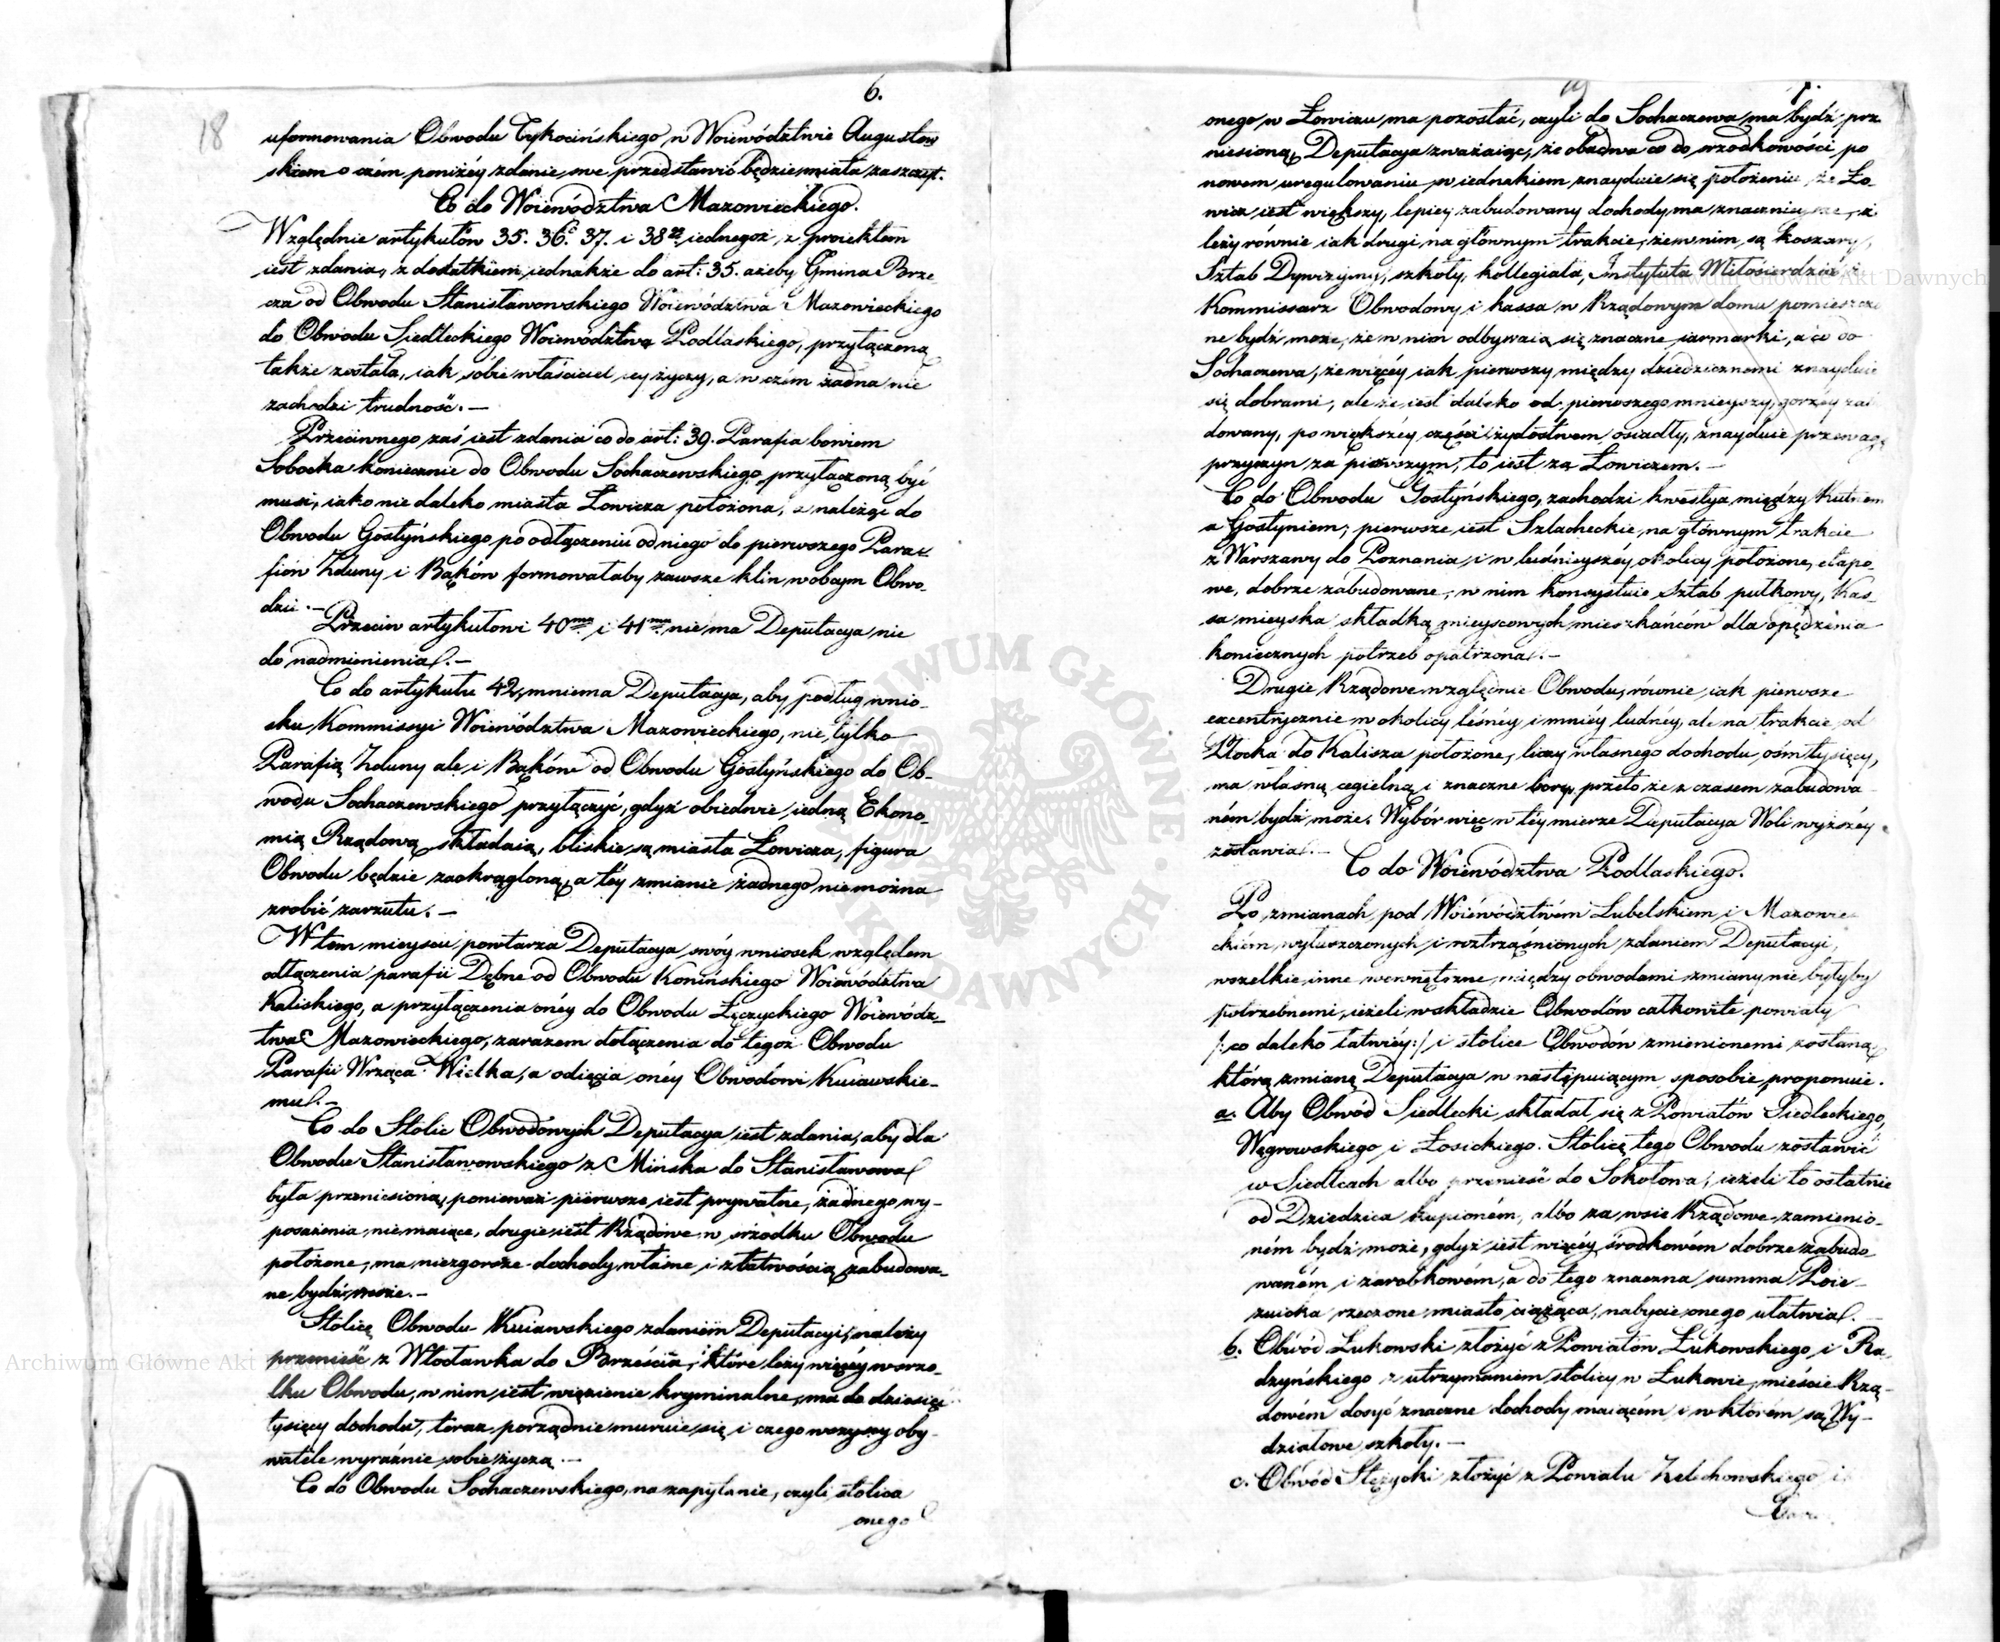 18
6.
uformowania Obwodu Tykocińskiego w Woiewództwie Augustow
skiem o czém poniżéy zdanie swe przedstawić będzie miała zaszczyt.
Co do Woiewództwa Mazowieckiego.
Względnie artykułów 35. 36. 37. i 38 iednegoż z proiektem
iest zdania, z dodatkiem iednakże do art: 35. ażeby Gmina Brze
cza od Obwodu Stanisławowskiego Woiewództwa Mazowieckiego
do Obwodu Siedleckiego Woiewództwa Podlaskiego, przyłączoną
także została, iak sobie właściciel iey życzy, a w czém żadna nie
zachodzi trudność. —
Przeciwnego zaś iest zdania co do art: 39. Parafia bowiem
Sobocka koniecznie do Obwodu Sochaczewskiego przyłączoną być
musi, iako nie daleko miasta Łowicza położona, a należąc do
Obwodu Gostyńskiego po odłączeniu od niego do pierwszego Para-
fiów Zduny i Bąków formowałaby zawsze klin w obcym Obwo-
dzie. —
Przeciw artykułowi 40mu i 41mu nie ma Deputacya nic
do nadmienienia. —
Co do artykułu 42, mniema Deputacya, aby podług wnio-
sku Kommissyi Woiewództwa Mazowieckiego, nie tylko
Parafią Zduny ale i Bąków od Obwodu Gostyńskiego do Ob-
wodu Sochaczewskiego przyłączyć, gdyż obiedwie iedną Ekono-
mią Rządową składaią, bliskie są miasta Łowicza, figura
Obwodu będzie zaokrągloną, a téy zmianie żadnego nie można
zrobić zarzutu. —
W tem mieyscu powtarza Deputacya swóy wniosek względem
odłączenia parafii Dębne od Obwodu Konińskiego Woiewództwa
Kaliskiego, a przyłączenia onéy do Obwodu Łęczyckiego Woiewódz-
twa Mazowieckiego, zarazem dołączenia do tegoż Obwodu
Parafii Wrząca Wielka, a odięcia onéy Obwodowi Kuiawskie-
mu. —
Co do Stolic Obwodowych Deputacya iest zdania, aby dla
Obwodu Stanisławowskiego z Mińska do Stanisławowa
była przeniesioną, ponieważ pierwsze iest prywatne, żadnego wy-
posażenia nie maiące, drugie iest Rządowe w srzodku Obwodu
położone, ma niezgorsze dochody własne i z łatwością zabudowa-
ne bydź może. —
Stolicę Obwodu Kuiawskiego zdaniem Deputacyi, należy
przenieść z Włocławka do Brześcia, które leży więcéy w srzo-
dku Obwodu, w nim iest więzienie kryminalne, ma do dziesięć
tysięcy dochodu, teraz porządnie muruie się i czego wszyscy oby-
watele wyraźnie sobie życzą. —
Co do Obwodu Sochaczewskiego, na zapytanie, czyli stolica
onego
19
7.
onego w Łowiczu ma pozostać, czyli do Sochaczewa ma bydź prze
niesioną, Deputacya zważaiąc, że obadwa co do srzodkowości po
nowem uregulowaniu w iednakiem znayduie się położeniu, że Ło-
wicz iest większy, lepiéy zabudowany dochody ma znacznieysze, że
leży równie iak drugi na głównym trakcie, że w nim są koszary,
Sztab Dywizyjny, szkoły, kollegiata, Instytuta Miłosierdzia, że
Kommissarz Obwodowy i kassa w Rządowym domu pomieszczo
ne bydź może, że w nim odbywaią się znaczne iarmarki, a co do
Sochaczewa, że więcéy iak pierwszy między dziedzicznemi znayduie
się dobrami, ale że iest daleko od pierwszego mnieyszy, gorzéy zabu
dowany, po większéy części żydostwem osiadły, znayduie przewagę
przyczyn za pierwszym, to iest za Łowiczem. —
Co do Obwodu Gostyńskiego, zachodzi kwestya między Kutnem
a Gostyniem; pierwsze iest Szlacheckie, na głównym trakcie
z Warszawy do Poznania i w ludnieyszéy okolicy położone, etapo-
we, dobrze zabudowane, w nim konsystuie Sztab pułkowy, Kas-
sa mieyska składką mieyscowych mieszkańców dla opędzenia
koniecznych potrzeb opatrzona. —
Drugie Rządowe względnie Obwodu, równie iak pierwsze
excentrycznie w okolicy leśnéy i mniéy ludnéy, ale na trakcie od
Płocka do Kalisza położone, liczy własnego dochodu ośm tysięcy,
ma własną cegielnią i znaczne bory, przeto że z czasem zabudowa-
ném bydź może. Wybór więc w téy mierze Deputacya Woli wyższéy
zostawia. —
Co do Woiewództwa Podlaskiego.
Po zmianach pod Woiewództwem Lubelskiem i Mazowie-
ckiém wyłuszczonych i roztrząśnionych zdaniem Deputacyi,
wszelkie inne wewnętrzne między obwodami zmiany nie byłyby
potrzebnemi, ieżeli w składzie Obwodów całkowite powiaty
/: co daleko łatwiéy :/ i stolice Obwodów zmienionemi zostaną
którą zmianę Deputacya w następuiącym sposobie proponuie.
a. Aby Obwód Siedlecki składał się z Powiatów Siedleckiego,
Węgrowskiego i Łosickiego. Stolicę tego Obwodu zostawić
w Siedlcach albo przenieść do Sokołowa, ieżeli to ostatnie
od Dziedzica kupioném, albo za wsie Rządowe zamienio-
ném bydź może, gdyż iest więcéy środkowém dobrze zabudo
waném i zarobkowém, a do tego znaczna summa Poie-
zuicka rzeczone miasto ciążąca, nabycie onego ułatwia. —
b. Obwód Łukowski złożyć z Powiatów Łukowskiego i Ra-
dzyńskiego z utrzymaniem stolicy w Łukowie, mieście Rzą-
dowém dosyć znaczne dochody maiącém i w którém są Wy-
działowe szkoły. —
c. Obwód Stężycki złożyć z Powiatu Żelechowskiego i